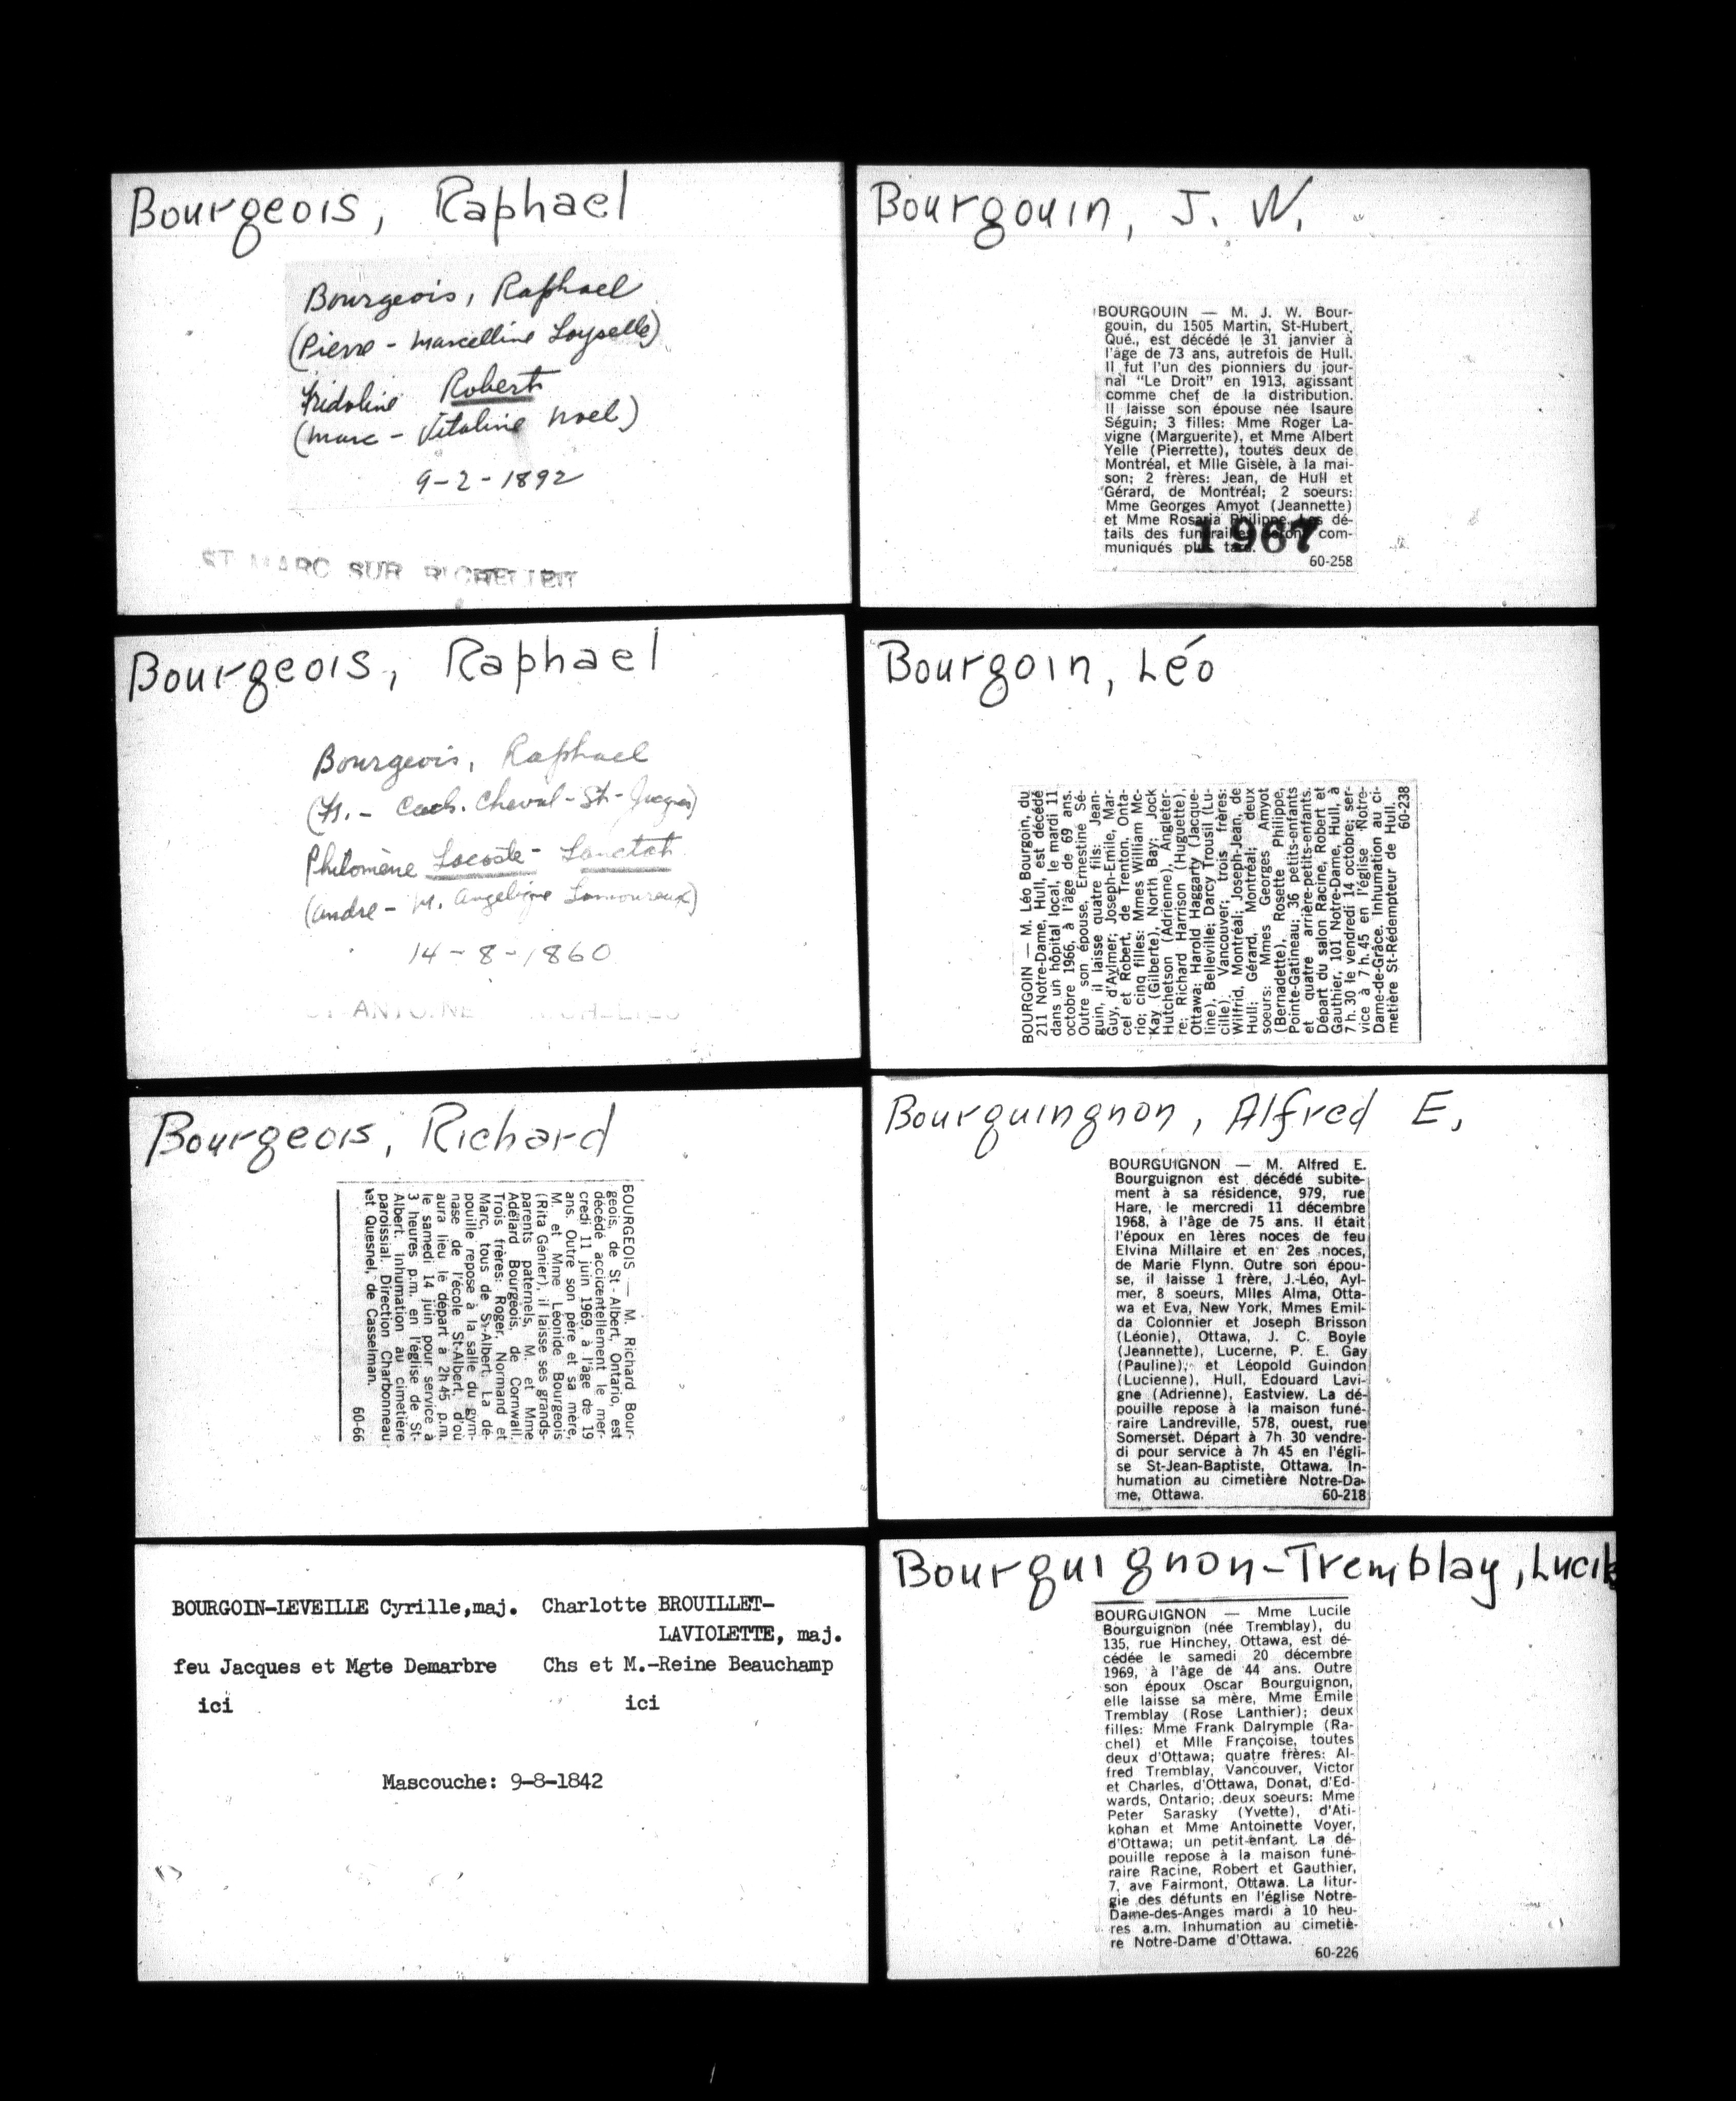 Bourgeois, Raphael
Bourgeois, Raphael
(Pierre - Marcelline Loyselle)
Fridoline Robert
(Marc - Vitaline Noel)
9-2-1892
ST MARC SUR RICHELIEU
Bourgeois, Raphael
Bourgeois, Raphael
(Fs. - Cach. Cheval - St-Jacques)
Philomène Lacoste - Lanctot
(André - M. Angelique Lamoureux)
14-8-1860
Bourgeois, Richard
BOURGEOIS — M. Richard Bour-
geois, de St-Albert, Ontario, est
décédé accidentellement le mer-
credi 11 juin 1969, à l'âge de 19
ans. Outre son père et sa mère,
M. et Mme Léonide Bourgeois
(Rita Génier), il laisse ses grands-
parents paternels, M. et Mme
Adélard Bourgeois, de Cornwall.
Trois frères: Roger, Normand et
Marc, tous de St-Albert. La dé-
pouille repose à la salle du gym-
nase de l'école St-Albert, d'où
aura lieu le départ à 2h 45 p.m.
le samedi 14 juin pour service à
3 heures p.m. en l'église de St-
Albert. Inhumation au cimetière
paroissial. Direction Charbonneau
et Quesnel, de Casselman.
60-66
BOURGOIN-LEVEILLE Cyrille,maj. Charlotte BROUILLET-
LAVIOLETTE, maj.
feu Jacques et Mgte Demarbre Chs et M.-Reine Beauchamp
ici ici
Mascouche: 9-8-1842
Bourgouin, J. W.
BOURGOUIN — M. J. W. Bour-
gouin, du 1505 Martin, St-Hubert,
Qué., est décédé le 31 janvier à
l'âge de 73 ans, autrefois de Hull.
Il fut l'un des pionniers du jour-
nal "Le Droit" en 1913, agissant
comme chef de la distribution.
Il laisse son épouse née Isaure
Séguin; 3 filles: Mme Roger La-
vigne (Marguerite), et Mme Albert
Yelle (Pierrette), toutes deux de
Montréal, et Mlle Gisèle, à la mai-
son; 2 frères: Jean, de Hull et
Gérard, de Montréal; 2 soeurs:
Mme Georges Amyot (Jeannette)
et Mme Rosaria Philippe. Les dé-
tails des funérailles seront com-
muniqués plus tard.
1967
60-258
Bourgoin, Léo
BOURGOIN — M. Léo Bourgoin, du
211 Notre-Dame, Hull, est décédé
dans un hôpital local, le mardi 11
octobre 1966, à l'âge de 69 ans.
Outre son épouse, Ernestine Sé-
guin, il laisse quatre fils: Jean-
Guy, d'Aylmer; Joseph-Emile, Mar-
cel et Robert, de Trenton, Onta-
rio; cinq filles: Mmes William Mc-
Kay (Gilberte), North Bay; Jock
Hutchetson (Adrienne), Angleter-
re; Richard Harrison (Huguette),
Ottawa; Harold Haggarty (Jacque-
line), Belleville; Darcy Trousil (Lu-
cille), Vancouver; trois frères:
Wilfrid, Montréal; Joseph-Jean, de
Hull; Gérard, Montréal; deux
soeurs: Mmes Georges Amyot
(Bernadette), Rosette Philippe,
Pointe-Gatineau; 36 petits-enfants
et quatre arrière-petits-enfants.
Départ du salon Racine, Robert et
Gauthier, 101 Notre-Dame, Hull, à
7 h. 30 le vendredi 14 octobre; ser-
vice à 7 h. 45 en l'église Notre-
Dame-de-Grâce. Inhumation au ci-
metière St-Rédempteur de Hull.
60-238
Bourquingnon, Alfred E.
BOURGUIGNON — M. Alfred E.
Bourguignon est décédé subite-
ment à sa résidence, 979, rue
Hare, le mercredi 11 décembre
1968, à l'âge de 75 ans. Il était
l'époux en 1ères noces de feu
Elvina Millaire et en 2es noces,
de Marie Flynn. Outre son épou-
se, il laisse 1 frère, J.-Léo, Ayl-
mer, 8 soeurs, Mlles Alma, Otta-
wa et Eva, New York, Mmes Emil-
da Colonnier et Joseph Brisson
(Léonie), Ottawa, J. C. Boyle
(Jeannette), Lucerne, P. E. Gay
(Pauline), et Léopold Guindon
(Lucienne), Hull, Edouard Lavi-
gne (Adrienne), Eastview. La dé-
pouille repose à la maison funé-
raire Landreville, 578, ouest, rue
Somerset. Départ à 7h 30 vendre-
di pour service à 7h 45 en l'égli-
se St-Jean-Baptiste, Ottawa. In-
humation au cimetière Notre-Da-
me, Ottawa. 60-218
Bourguignon-Tremblay, Lucile
BOURGUIGNON — Mme Lucile
Bourguignon (née Tremblay), du
135, rue Hinchey, Ottawa, est dé-
cédée le samedi 20 décembre
1969, à l'âge de 44 ans. Outre
son époux Oscar Bourguignon,
elle laisse sa mère, Mme Emile
Tremblay (Rose Lanthier); deux
filles: Mme Frank Dalrymple (Ra-
chel) et Mlle Françoise, toutes
deux d'Ottawa; quatre frères: Al-
fred Tremblay, Vancouver, Victor
et Charles, d'Ottawa, Donat, d'Ed-
wards, Ontario; deux soeurs: Mme
Peter Sarasky (Yvette), d'Ati-
kohan et Mme Antoinette Voyer,
d'Ottawa; un petit-enfant. La dé-
pouille repose à la maison funé-
raire Racine, Robert et Gauthier,
7, ave Fairmont, Ottawa. La litur-
gie des défunts en l'église Notre-
Dame-des-Anges mardi à 10 heu-
res a.m. Inhumation au cimetiè-
re Notre-Dame d'Ottawa.
60-226